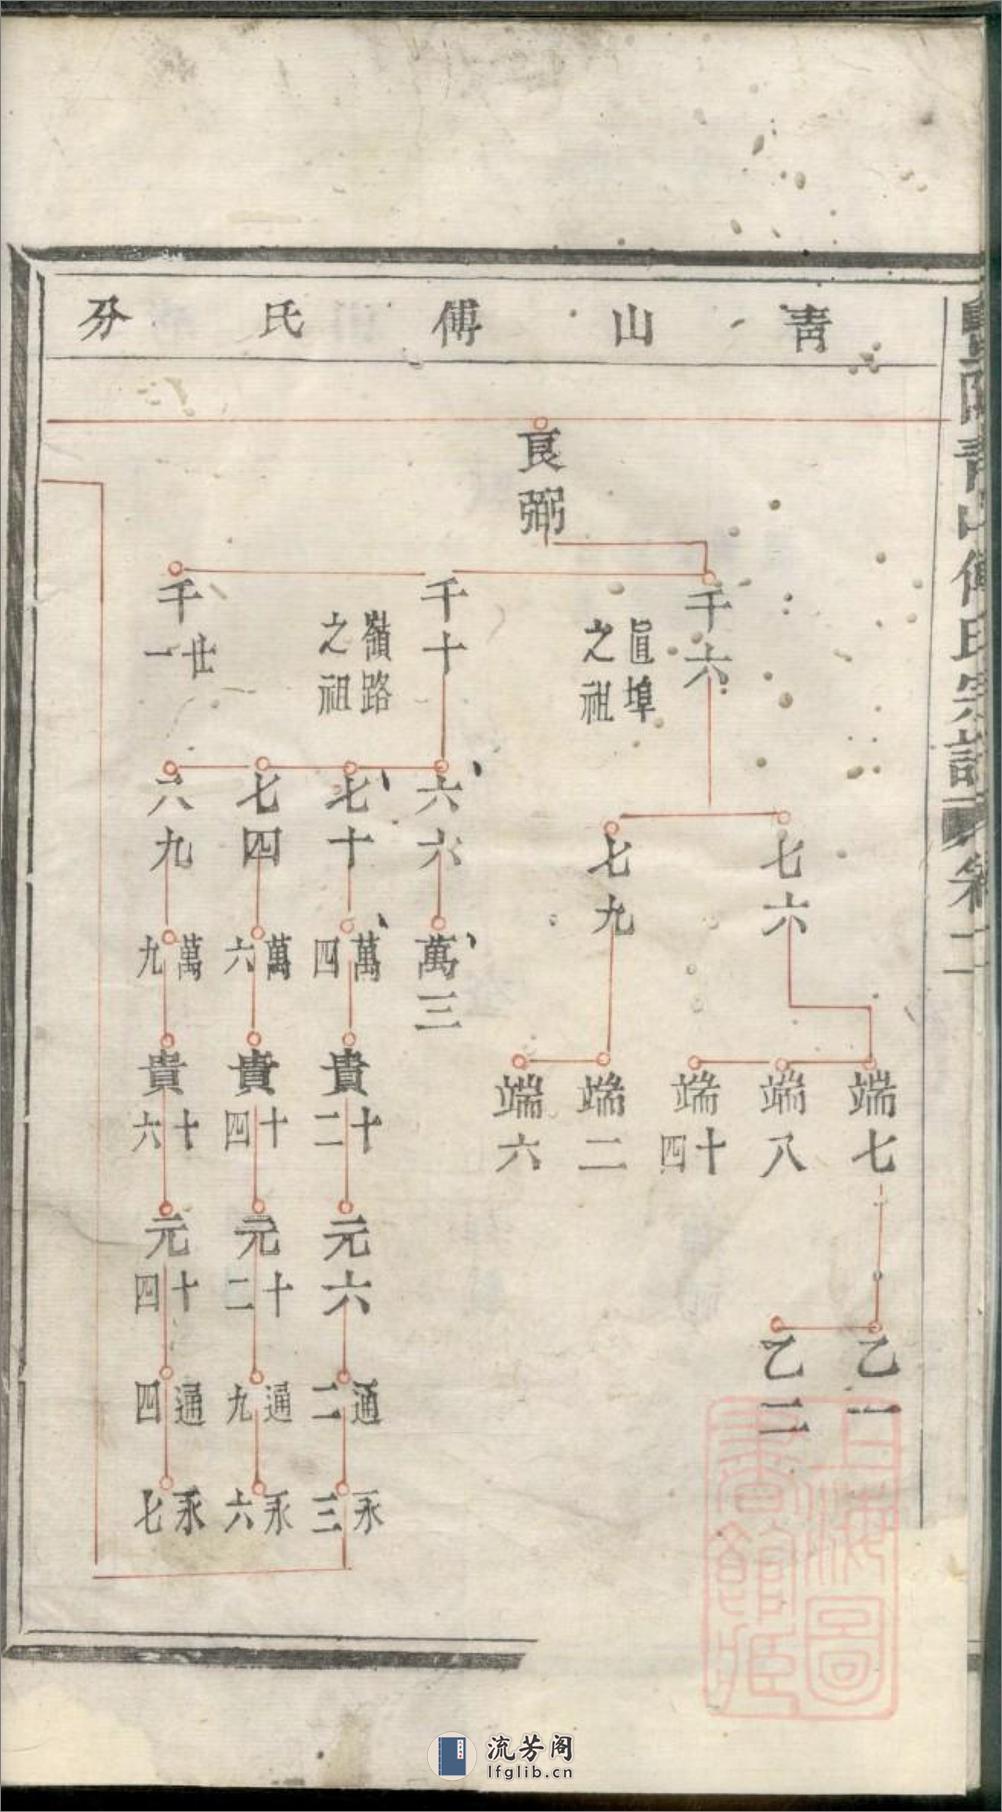 青山傅氏分
青山傅氏宗譜 卷二
良弼
千六
眞埠之祖
千十
嶺路之祖
千廿一
七六
七九
六六
七十
七四
六九
萬三
萬四
萬六
萬九
端七
端八
端十四
端二
端六
貴十二
貴十四
貴十六
元六
元十二
元十四
乙一
乙二
通二
通九
通四
永三
永六
永七
上海圖書館藏
流芳阁
lfglib.cn